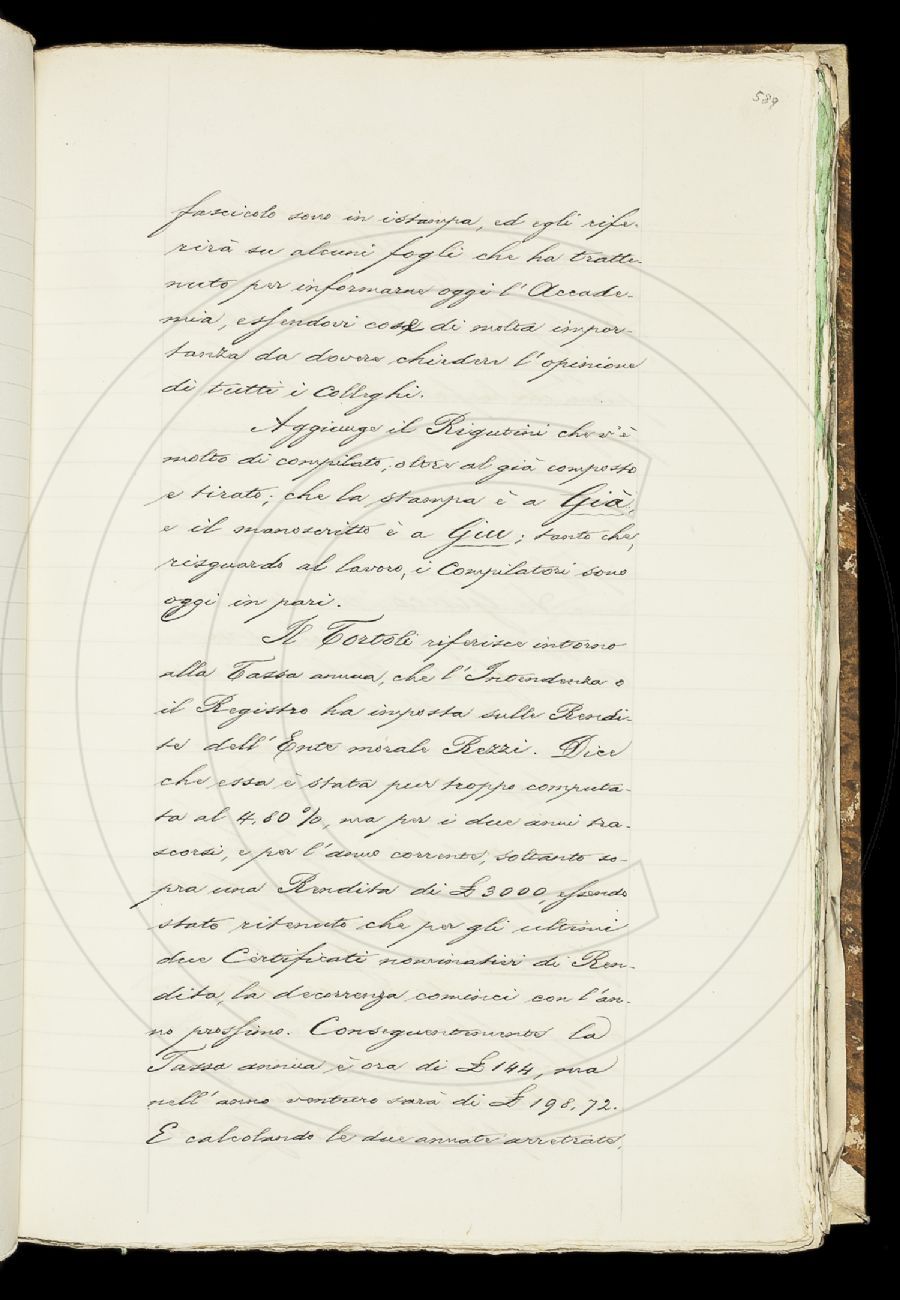 589
fascicolo sono in istampa, ed egli rife-
rirà su alcuni fogli che ha tratte-
nuto per informarne oggi l'Accade-
mia, essendovi cose di molta impor-
tanza da dovere chiedere l'opinione
di tutti i Colleghi.
Aggiunge il Rigutini che v'è
molto di compilato, oltre al già composto
e tirato; che la stampa è a Già,
e il manoscritto è a Giu; tanto che,
risguardo al lavoro, i Compilatori sono
oggi in pari.
Il Tortoli riferisce intorno
alla Tassa annua, che l'Intendenza o
il Registro ha imposta sulle Rendi-
te dell'Ente morale Rezzi. Dice
che essa è stata pur troppo computa-
ta al 4.80 %, ma per i due anni tra-
scorsi, e per l'anno corrente, soltanto so-
pra una Rendita di £ 3000, essendo
stato ritenuto che per gli ultimi
due Certificati nominativi di Ren-
dita, la decorrenza cominci con l'an-
no prossimo. Conseguentemente la
Tassa annua è ora di £ 144, ma
nell'anno venturo sarà di £ 198.72.
E calcolando le due annate arretrate,